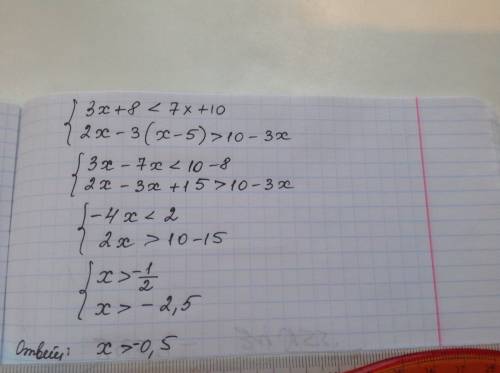 { 3x+8 < 7x+10
2x-3(x-5)>10-3x
{ 3x-7x<10-8
2x-3x+15>10-3x
{ -4x<2
2x>10-15
{ x>-1/2
x>-2,5
Ответ: x>-0,5